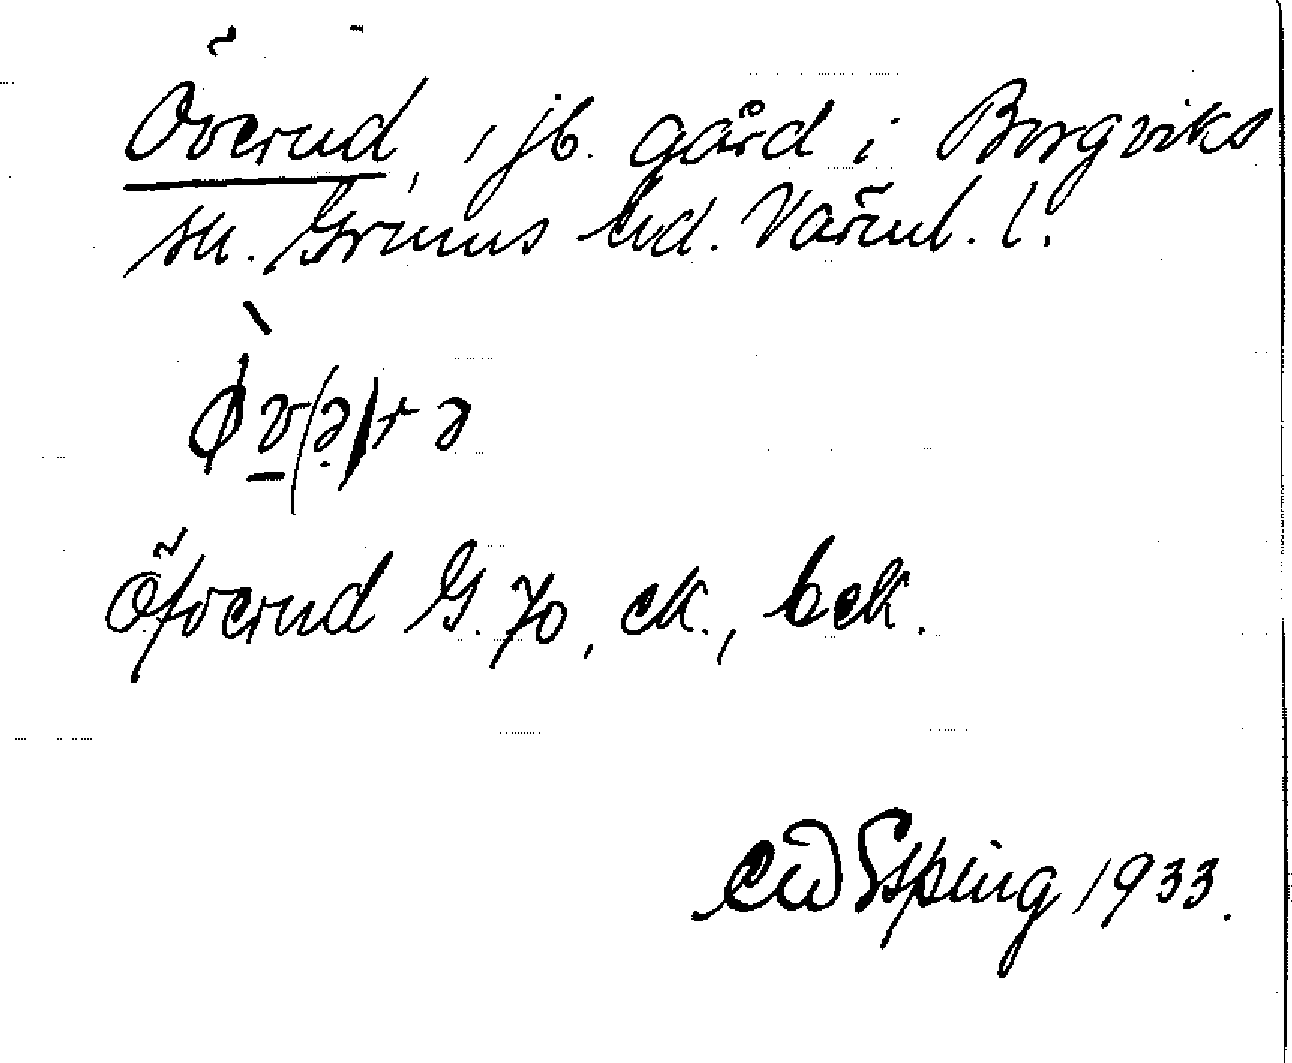 Överud, jb. gård i Borgviks
sn. Grums hd. Värml. l.
ø̀v(ə)rə
Öfverud G. Jo, ek., bek.
Espling 1933.